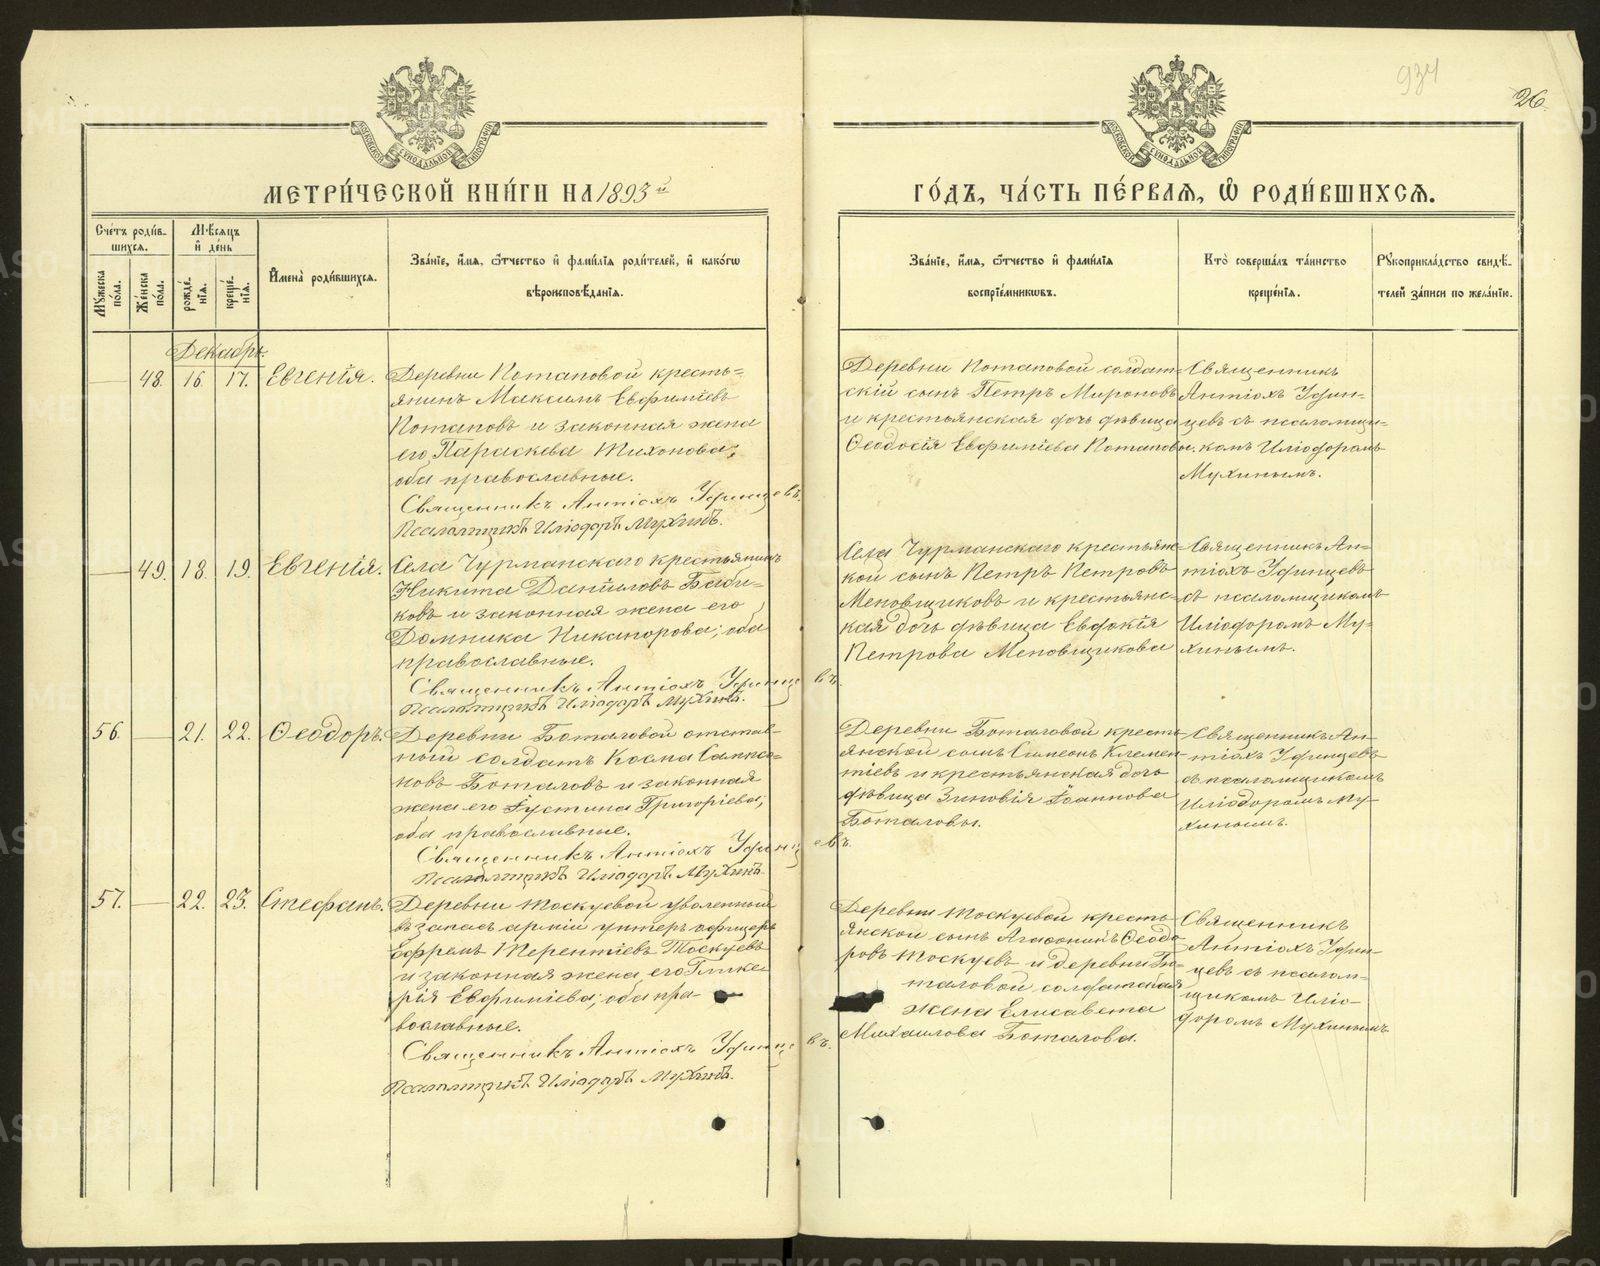 934
26
МЕТРИ́ЧЕСКОЙ КНИ́ГИ НА 1893й
ГО́ДЪ, ЧА́СТЬ ПЕ́РВАЯ, Ѽ РОДИ́ВШИХСЯ.
Сче́тъ роди́в-
шихся.
Мѣсяцъ
и де́нь
Мꙋжеска по́ла.
Же́нска по́ла.
рожде́-
нїѧ.
креще́-
нїѧ.
И҆мена̀ роди́вшихся.
Зва́нїе, и҆́мѧ, ѻ҆́тчество и҆ фами́лїѧ роди́телей, и҆ како́гѡ
вѣроисповѣ́данїѧ.
Зва́нїе, и҆́мѧ, ѻ҆́тчество и҆ фами́лїѧ
воспрїе́мникѡвъ.
Кто̀ соверша́лъ та́инство
креще́нїѧ.
Рꙋкоприкла́дство свидѣ́-
телей за́писи по жела́нїю.
Декабрь.
48. 16. 17. Евгенія.
Деревни Потаповой кресть-
янинъ Максимъ Евфиміевъ
Потаповъ и законная жена
его Параскева Тихонова;
оба православные.
Священникъ Антіохъ Уфинцевъ.
Псаломщикъ Иліодоръ Мухинъ.
Деревни Потаповой солдат-
скій сынъ Петръ Мироновъ
и крестьянская дочь дѣвица
Ѳеодосія Евфиміева Потаповы.
Священникъ
Антіохъ Уфин-
цевъ съ псаломщи-
комъ Иліодоромъ
Мухинымъ.
49. 18. 19. Евгенія.
Села Чурманскаго крестьянинъ
Никита Даніиловъ Баби-
ковъ и законная жена его
Домника Никанорова; оба
православные.
Священникъ Антіохъ Уфинцевъ.
Псаломщикъ Иліодоръ Мухинъ.
Села Чурманскаго крестьянс-
кой сынъ Петръ Петровъ
Меновщиковъ и крестьянс-
кая дочь дѣвица Евдокія
Петрова Меновщикова
Священникъ Ан-
тіохъ Уфинцевъ
съ псаломщикомъ
Иліодоромъ Му-
хинымъ.
56. 21. 22. Ѳеодоръ.
Деревни Боталовой отстав-
ный солдатъ Косма Сампсо-
новъ Боталовъ и законная
жена его Іустина Григоріева;
оба православные.
Священникъ Антіохъ Уфинцевъ.
Псаломщикъ Иліодоръ Мухинъ.
Деревни Боталовой кресть-
янской сынъ Симеонъ Клемен-
тіевъ и крестьянская дочь
дѣвица Зиновія Іоаннова
Боталовы.
Священникъ Ан-
тіохъ Уфинцевъ
съ псаломщикомъ
Иліодоромъ Му-
хинымъ.
57. 22. 23. Стефанъ.
Деревни Москуевой уволенный
въ запасъ арміи унтеръ-офицеръ
Ефремъ Терентіевъ Москуевъ
и законная жена его Глике-
рія Евфиміева; оба пра-
вославные.
Священникъ Антіохъ Уфинцевъ.
Псаломщикъ Иліодоръ Мухинъ.
Деревни Москуевой кресть-
янской сынъ Агафоникъ Ѳеодо-
ровъ Москуевъ и деревни Бо-
таловой солдатская
жена Елисавета
Михаилова Боталова.
Священникъ
Антіохъ Уфин-
цевъ съ псалом-
щикомъ Иліо-
доромъ Мухинымъ.